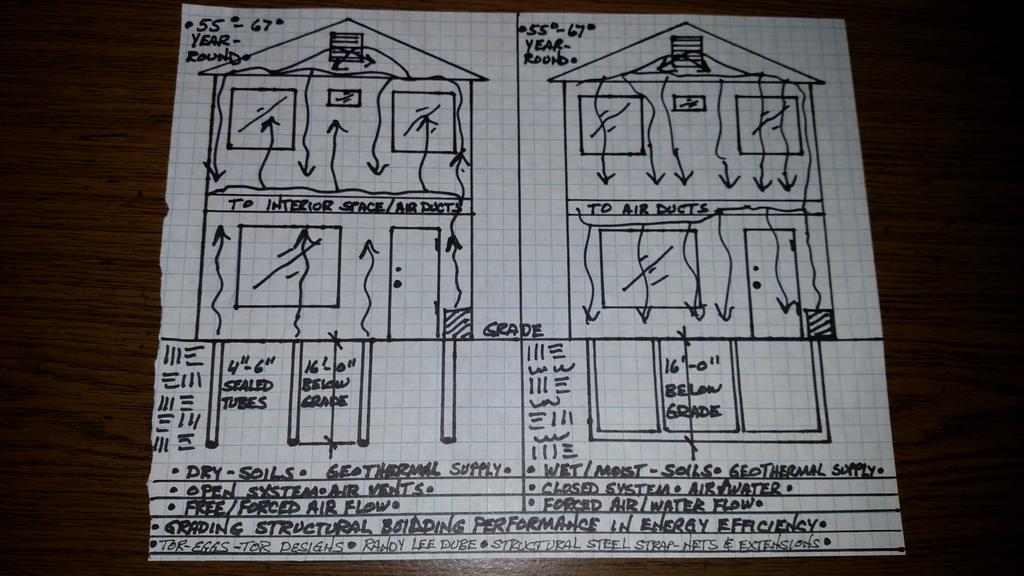 •55°-67°
YEAR-
ROUND•
TO INTERIOR SPACE/AIR DUCTS
GRADE
4"-6"
SEALED
TUBES
16'-0"
BELOW
GRADE
• DRY-SOILS• GEOTHERMAL SUPPLY•
• OPEN SYSTEM•AIR VENTS•
• FREE/FORCED AIR FLOW•
•55°-67°
YEAR-
ROUND•
TO AIR DUCTS
16'-0"
BELOW
GRADE
• WET/MOIST-SOILS• GEOTHERMAL SUPPLY•
• CLOSED SYSTEM• AIR/WATER•
• FORCED AIR/WATER FLOW•
•GRADING STRUCTURAL BUILDING PERFORMANCE IN ENERGY EFFICIENCY•
•TOR-EGGS-TOR DESIGNS• RANDY LEE DUBE•STRUCTURAL STEEL STRAP-NETS & EXTENSIONS•